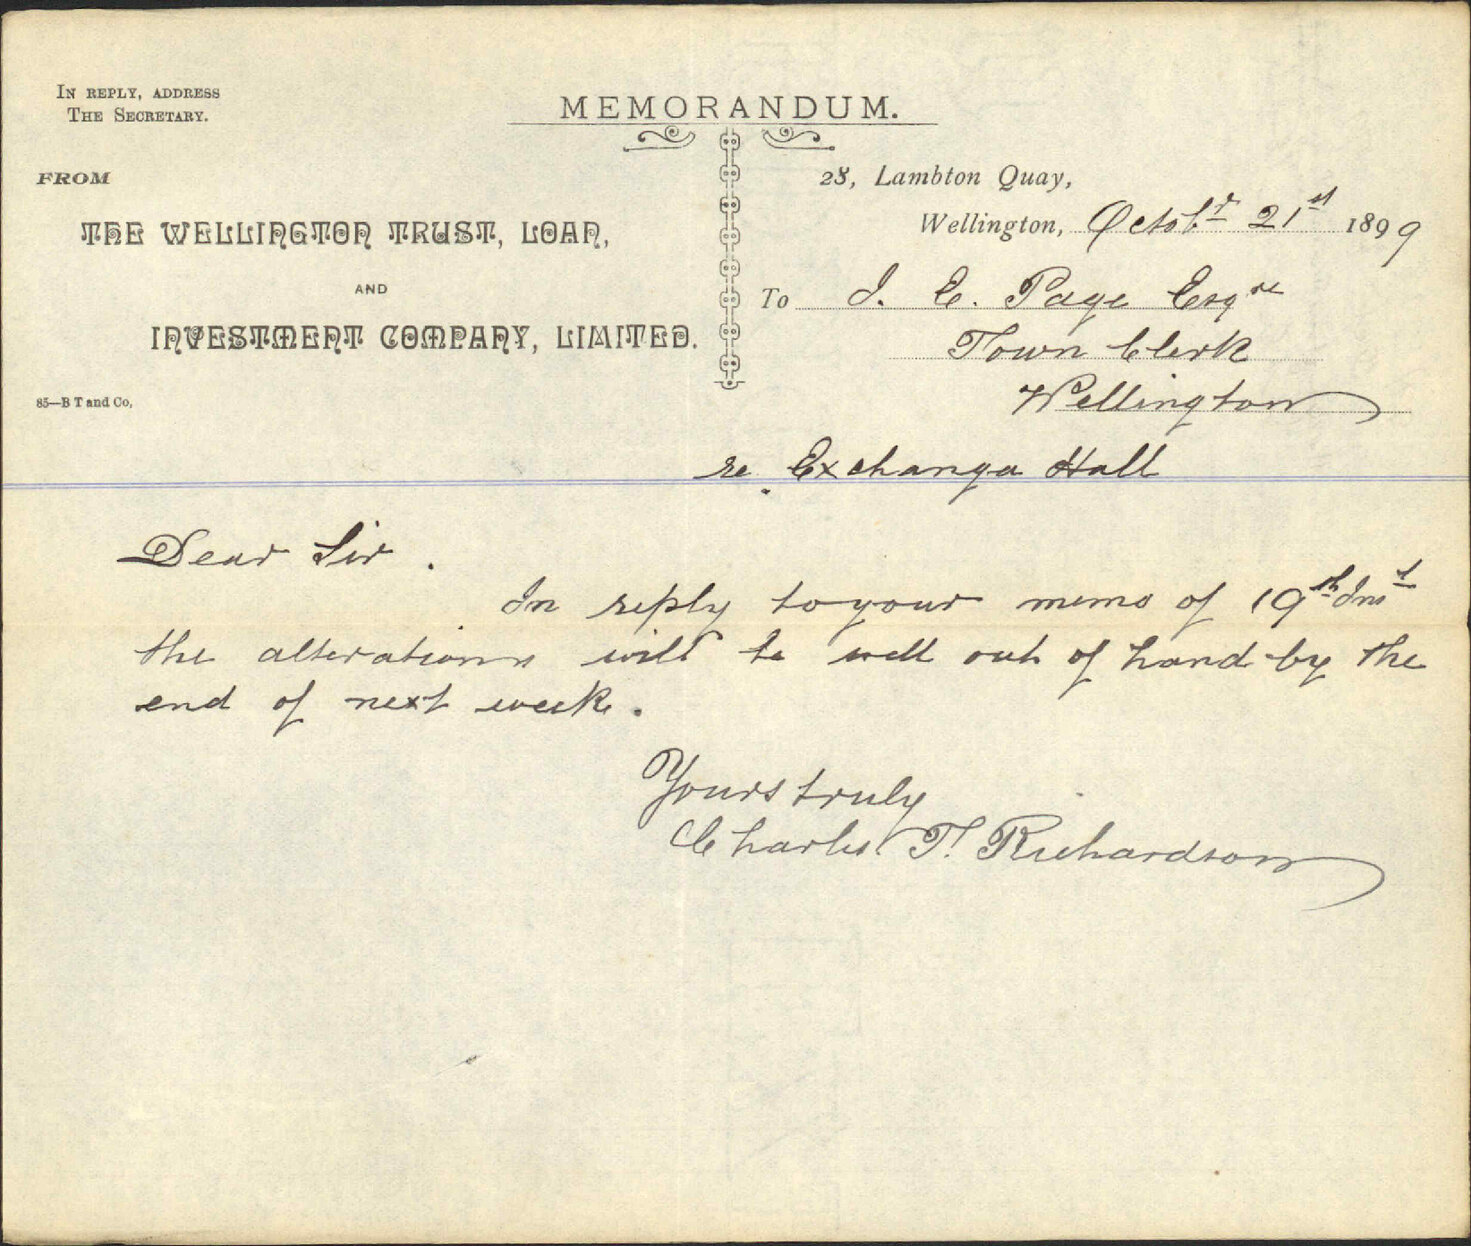 IN REPLY, ADDRESS
THE SECRETARY.
MEMORANDUM.
FROM
THE WELLINGTON TRUST, LOAN,
AND
INVESTMENT COMPANY, LIMITED.
85—B T and Co,
28, Lambton Quay,
Wellington, Octobr 21st 1899
To J. E. Page Esqre
Town Clerk
Wellington
re Exchange Hall
Dear Sir.
In reply to your memo of 19th Inst
the alterations will be well out of hand by the
end of next week.
Yours truly
Charles T. Richardson